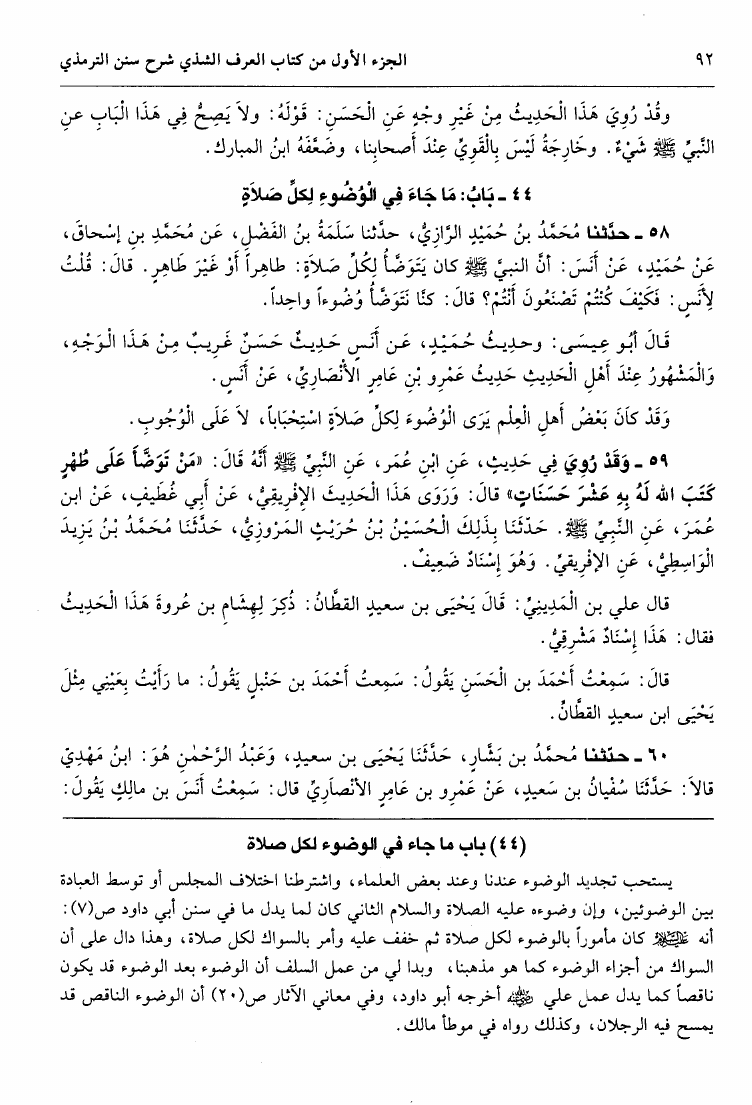 ٩٢ الجزء الأول من كتاب العرف الشذي شرح سنن الترمذي
وقُدْ رُوِيَ هَذَا الْحَدِيثُ مِنْ غَيْرِ وجْهٍ عَنِ الْحَسَنِ: قَوْلَهُ: ولاَ يَصِحُّ فِي هَذَا الْبَابِ عنِ
النَّبِيِّ ﷺ شَيْءٌ. وخَارِجَةُ لَيْسَ بِالْقَوِيِّ عِنْدَ أَصحابِنا، وضَعَّفَهُ ابنُ المبارك.
٤٤ - بَابُ: مَا جَاءَ فِي الْوُضُوءِ لِكلِّ صَلاَةٍ
٥٨ - حدَّثنا مُحَمَّدُ بنُ حُمَيْدٍ الرَّازِيُّ، حدَّثنا سَلَمَةُ بنُ الفَضْلِ، عَن مُحَمَّدِ بنِ إسْحاقَ،
عَنْ حُمَيْدٍ، عَنْ أَنَسَ: أنَّ النبيَّ ﷺ كان يَتَوَضَّأُ لِكُلِّ صَلاَةٍ: طاهِراً أَوْ غَيْرَ طَاهِرٍ. قالَ: قُلْتُ
لِأَنَسٍ: فَكَيْفَ كُنْتُمْ تَصْنَعُونَ أَنْتُمْ؟ قالَ: كنَّا نَتَوَضَّأُ وُضُوءاً واحِداً.
قَالَ أَبُو عِيسَى: وحدِيثُ حُمَيْدٍ، عَن أَنَسٍ حَدِيثٌ حَسَنٌ غَرِيبٌ مِنْ هَذَا الْوَجْهِ،
وَالْمَشْهُورُ عِنْدَ أَهْلِ الْحَدِيثِ حَدِيثُ عَمْرِو بْنِ عَامِرٍ الأَنْصَارِيِّ، عَنْ أَنَسٍ.
وَقَدْ كاَنَ بَعْضُ أَهلِ الْعِلْمِ يَرَى الْوُضُوءَ لِكلِّ صَلاَةٍ اسْتِحْبَاباً، لاَ عَلَى الْوُجُوبِ.
٥٩ - وَقَدْ رُوِيَ فِي حَدِيثٍ، عَنِ ابْنِ عُمَر، عَنِ النَّبِيِّ ﷺ أَنَّهُ قَالَ: «مَنْ تَوَضَّأَ عَلَى طُهْرٍ
كَتَبَ الله لَهُ بِهِ عَشْرَ حَسَنَاتٍ» قالَ: وَرَوَى هَذَا الْحَدِيثَ الإفْرِيقِيُّ، عَنْ أَبِي غُطَيفٍ، عَنْ ابن
عُمَرَ، عَنِ النَّبِيِّ ﷺ. حَدَّثَنَا بِذَلِكَ الْحُسَيْنُ بْنُ حُرَيْثٍ المَرْوزِيُّ، حَدَّثَنَا مُحَمَّدُ بْنُ يَزِيدَ
الْوَاسِطِيُّ، عَنِ الإفْرِيقيِّ. وَهُوَ إِسْنَادٌ ضَعِيفٌ.
قال علي بن الْمَدِينِيِّ: قَالَ يَحْيَى بن سعيدٍ القطَّانُ: ذُكِرَ لِهِشَامِ بن عُروةَ هَذَا الْحَدِيثُ
فقال: هَذَا إِسْنَادٌ مَشْرِقِيٌّ.
قالَ: سَمِعْتُ أَحْمَدَ بن الْحَسَنِ يَقُولُ: سَمِعتُ أَحْمَدَ بن حَنْبلٍ يَقُولُ: ما رَأَيْتُ بِعَيْنِي مِثْلَ
يَحْيَى ابن سعيدٍ القطَّانِّ.
٦٠ - حدّثنا مُحمَّدُ بن بَشَّارٍ، حَدَّثَنَا يَحْيَى بن سعيدٍ، وَعَبْدُ الرَّحْمٰنِ هُوَ: ابنُ مَهْدِيّ
قالاَ: حَدَّثَنَا سُفْيانُ بن سَعيدٍ، عَنْ عَمْرِو بن عَامِرٍ الأنْصَارِيِّ قال: سَمِعْتُ أَنَسَ بن مالِكٍ يَقُولُ:
(٤٤) باب ما جاء في الوضوء لكل صلاة
يستحب تجديد الوضوء عندنا وعند بعض العلماء، واشترطنا اختلاف المجلس أو توسط العبادة
بين الوضوئين، وإن وضوءه عليه الصلاة والسلام الثاني كان لما يدل ما في سنن أبي داود ص(٧):
أنه ﷺ كان مأموراً بالوضوء لكل صلاة ثم خفف عليه وأمر بالسواك لكل صلاة، وهذا دال على أن
السواك من أجزاء الوضوء كما هو مذهبنا، وبدا لي من عمل السلف أن الوضوء بعد الوضوء قد يكون
ناقصاً كما يدل عمل علي رضي الله عنه أخرجه أبو داود، وفي معاني الآثار ص(٢٠) أن الوضوء الناقص قد
يمسح فيه الرجلان، وكذلك رواه في موطأ مالك.